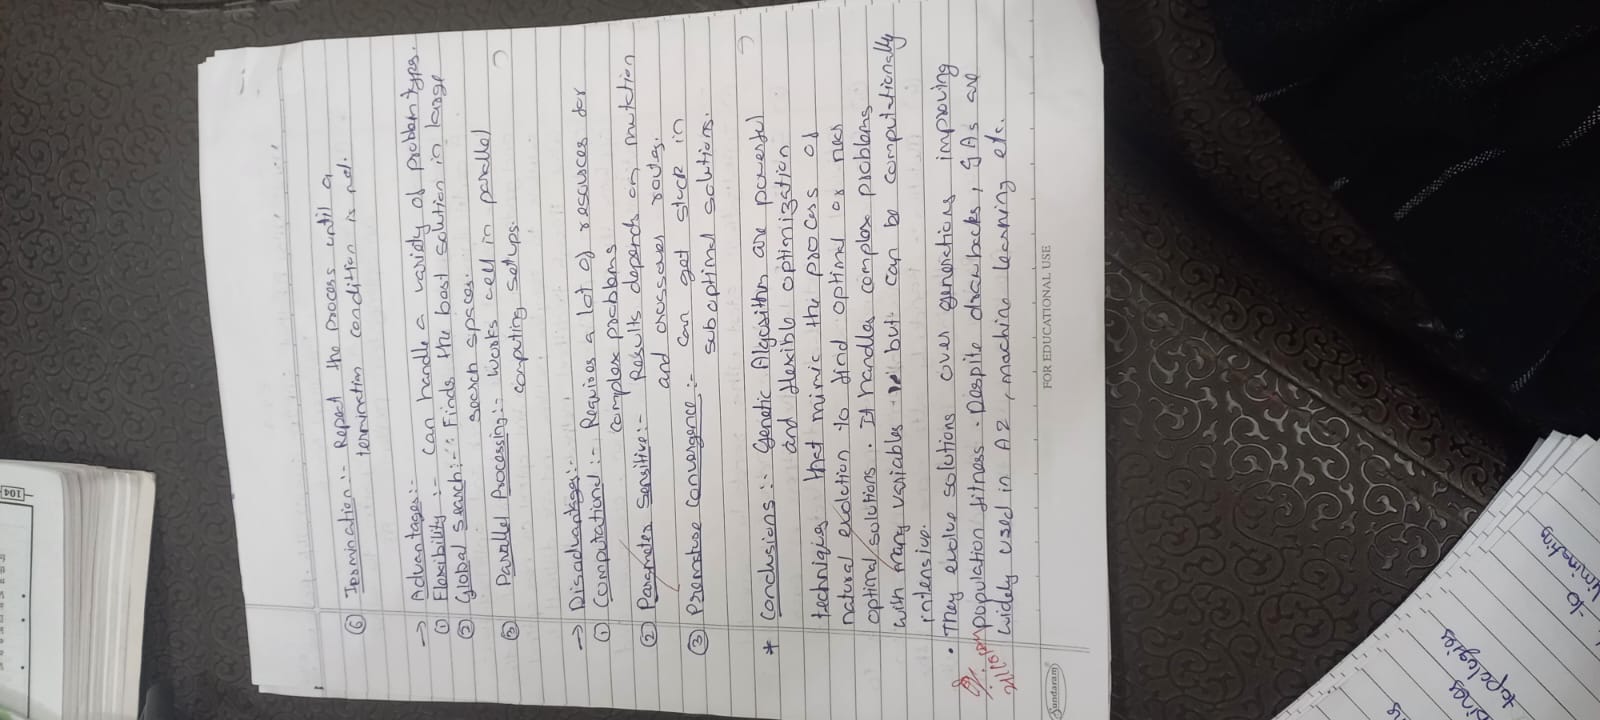 104
⑥ Termination :- Repeat the process until a
termination condition is met.
→ Advantages:-
① Flexibility :- can handle a variety of problem types.
② Global Search:- Finds the best solution in large
search spaces.
③ Parallel Processing:- Works well in parallel
computing setups.
→ Disadvantages:-
① Computational :- Requires a lot of resources for
complex problems
② Parameter Sensitive:- Results depends on mutation
and crossover
③ Premature Convergence :- Can get stuck in
suboptimal solutions.
* Conclusions :- Genetic Algorithm are powerful
and flexible optimization
that mimic the process of
natural evolution to find optimal or near
optimal solutions. It handles complex problems
with many variables but can be computationally
intensive.
• They evolve solutions over generations improving
population fitness. Despite drawbacks, GAs are
widely used in AI, machine learning etc.
Sundaram
FOR EDUCATIONAL USE
topologies
to
liminating